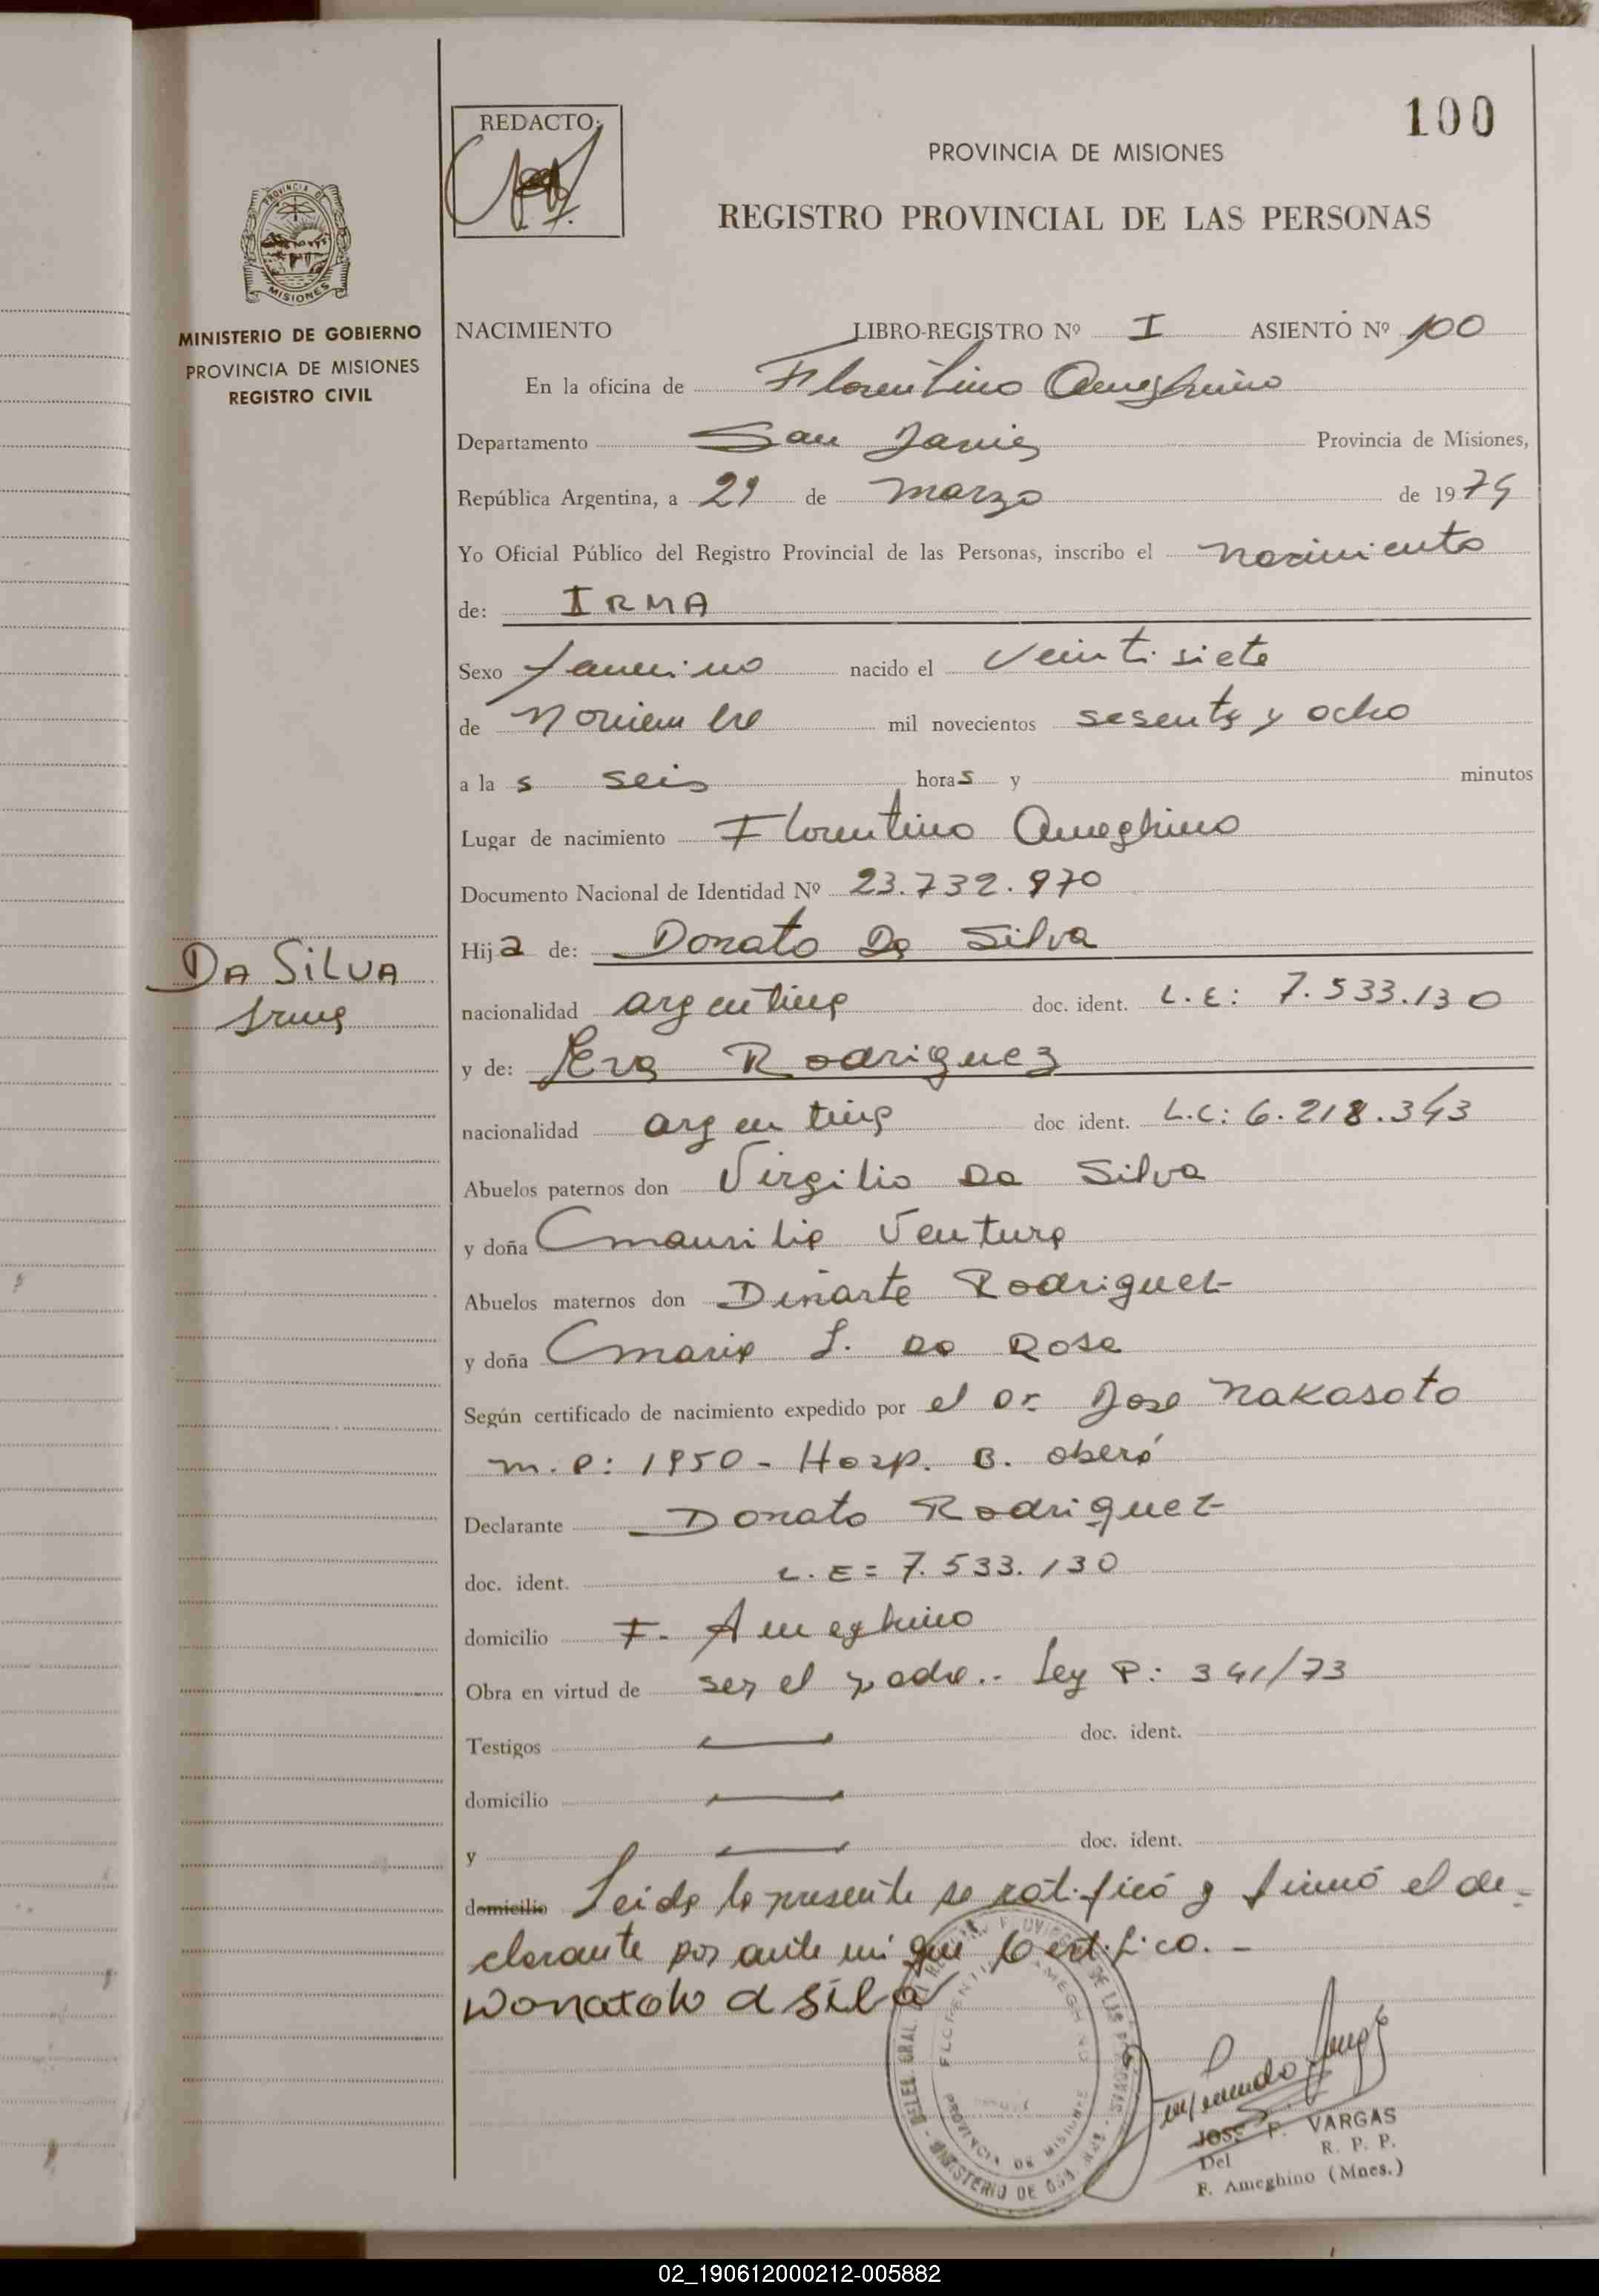 100
REDACTO:
PROVINCIA DE MISIONES
REGISTRO PROVINCIAL DE LAS PERSONAS
PROVINCIA DE
MISIONES
MINISTERIO DE GOBIERNO
PROVINCIA DE MISIONES
REGISTRO CIVIL
NACIMIENTO LIBRO-REGISTRO Nº I ASIENTO Nº 100
En la oficina de Florentino Ameghino
Departamento San Javier Provincia de Misiones,
República Argentina, a 29 de marzo de 1974
Yo Oficial Público del Registro Provincial de las Personas, inscribo el nacimiento
de: IRMA
Sexo femenino nacido el veinti siete
de Noviembre mil novecientos sesenta y ocho
a la s seis horas y minutos
Lugar de nacimiento Florentino Ameghino
Documento Nacional de Identidad Nº 23.732.970
Hija de: Donato Da Silva
DA SILVA
Irma
nacionalidad argentina doc. ident. L.E: 7.533.130
y de: Eva Rodriguez
nacionalidad argentina doc ident. L.C: 6.218.343
Abuelos paternos don Virgilio Da Silva
y doña Maurilia Ventura
Abuelos maternos don Dinarte Rodriguez
y doña Maria L. Da Rosa
Según certificado de nacimiento expedido por el Dr. Jose Nakasato
M.P: 1950 - Hosp. B. Oberá
Declarante Donato Rodriguez
doc. ident. L.E= 7.533.130
domicilio F. Ameghino
Obra en virtud de ser el padre.- Ley P: 341/73
Testigos doc. ident.
domicilio
y doc. ident.
domicilio Leida la presente se ratificó y firmó el de-
clarante por ante mi que Certifico. -
Wonatoh d silva
FLORENTINO AMEGHINO
PROVINCIA DE MISIONES
MINISTERIO DE GOB.
JOSE F. VARGAS
Del R. P. P.
F. Ameghino (Mnes.)
02_190612000212-005882